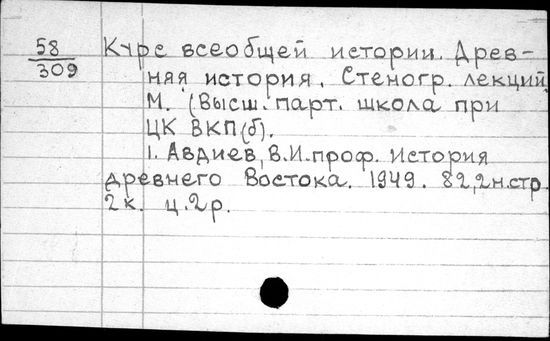 58
309
Курс всеобщей истории. Древ-
няя история. Стеногр. лекций.
М. (Высш. парт. школа при
ЦК ВКП(б).
1. Авдиев, В.И. проф. История
древнего Востока. 1949. 82,2н.стр.
2к. ц.2р.